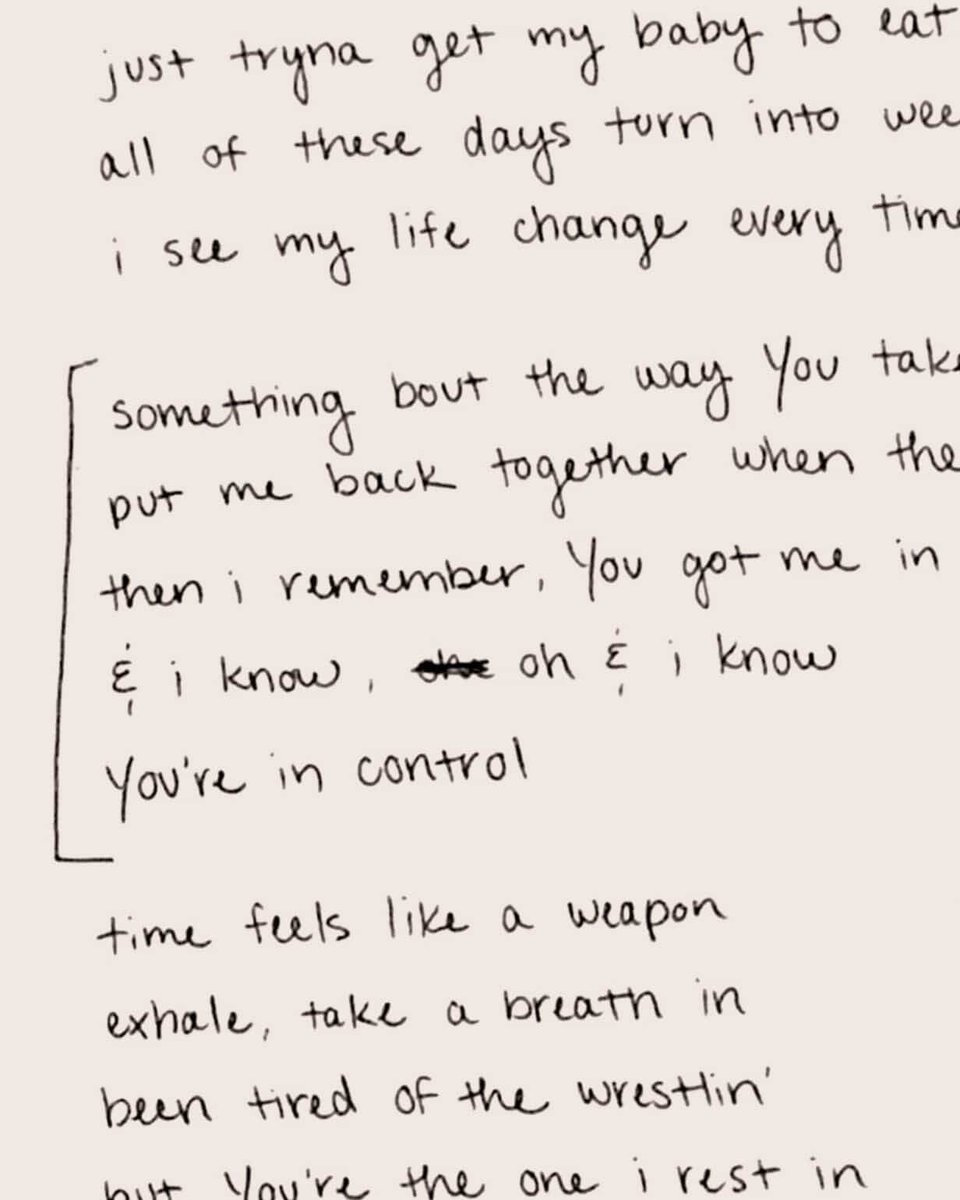 just tryna get my baby to eat
all of these days turn into
i see my life change every
something bout the way You
put me back together when
then i remember, You got me in
& i know, oh & i know
You're in control
time feels like a weapon
exhale, take a breath in
been tired of the wrestlin'
but You're the one i rest in